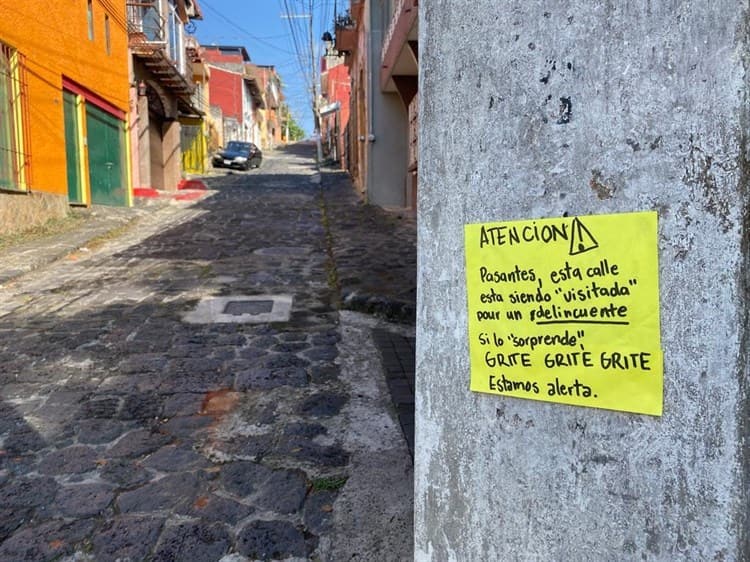 ATENCION
Pasantes, esta calle
esta siendo "visitada"
pour un delincuente
Si lo "sorprende",
GRITE GRITE GRITE
Estamos alerta.